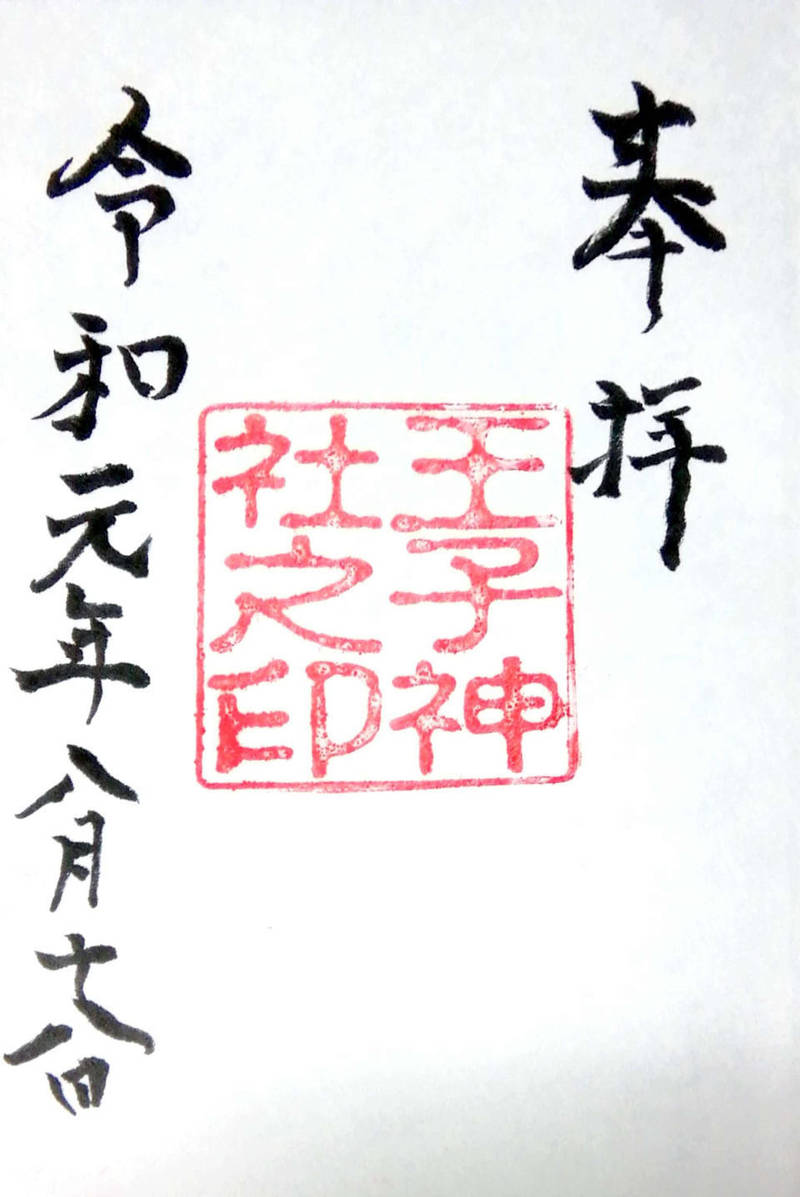 奉拝
王子神
社之印
令和元年八月十八日